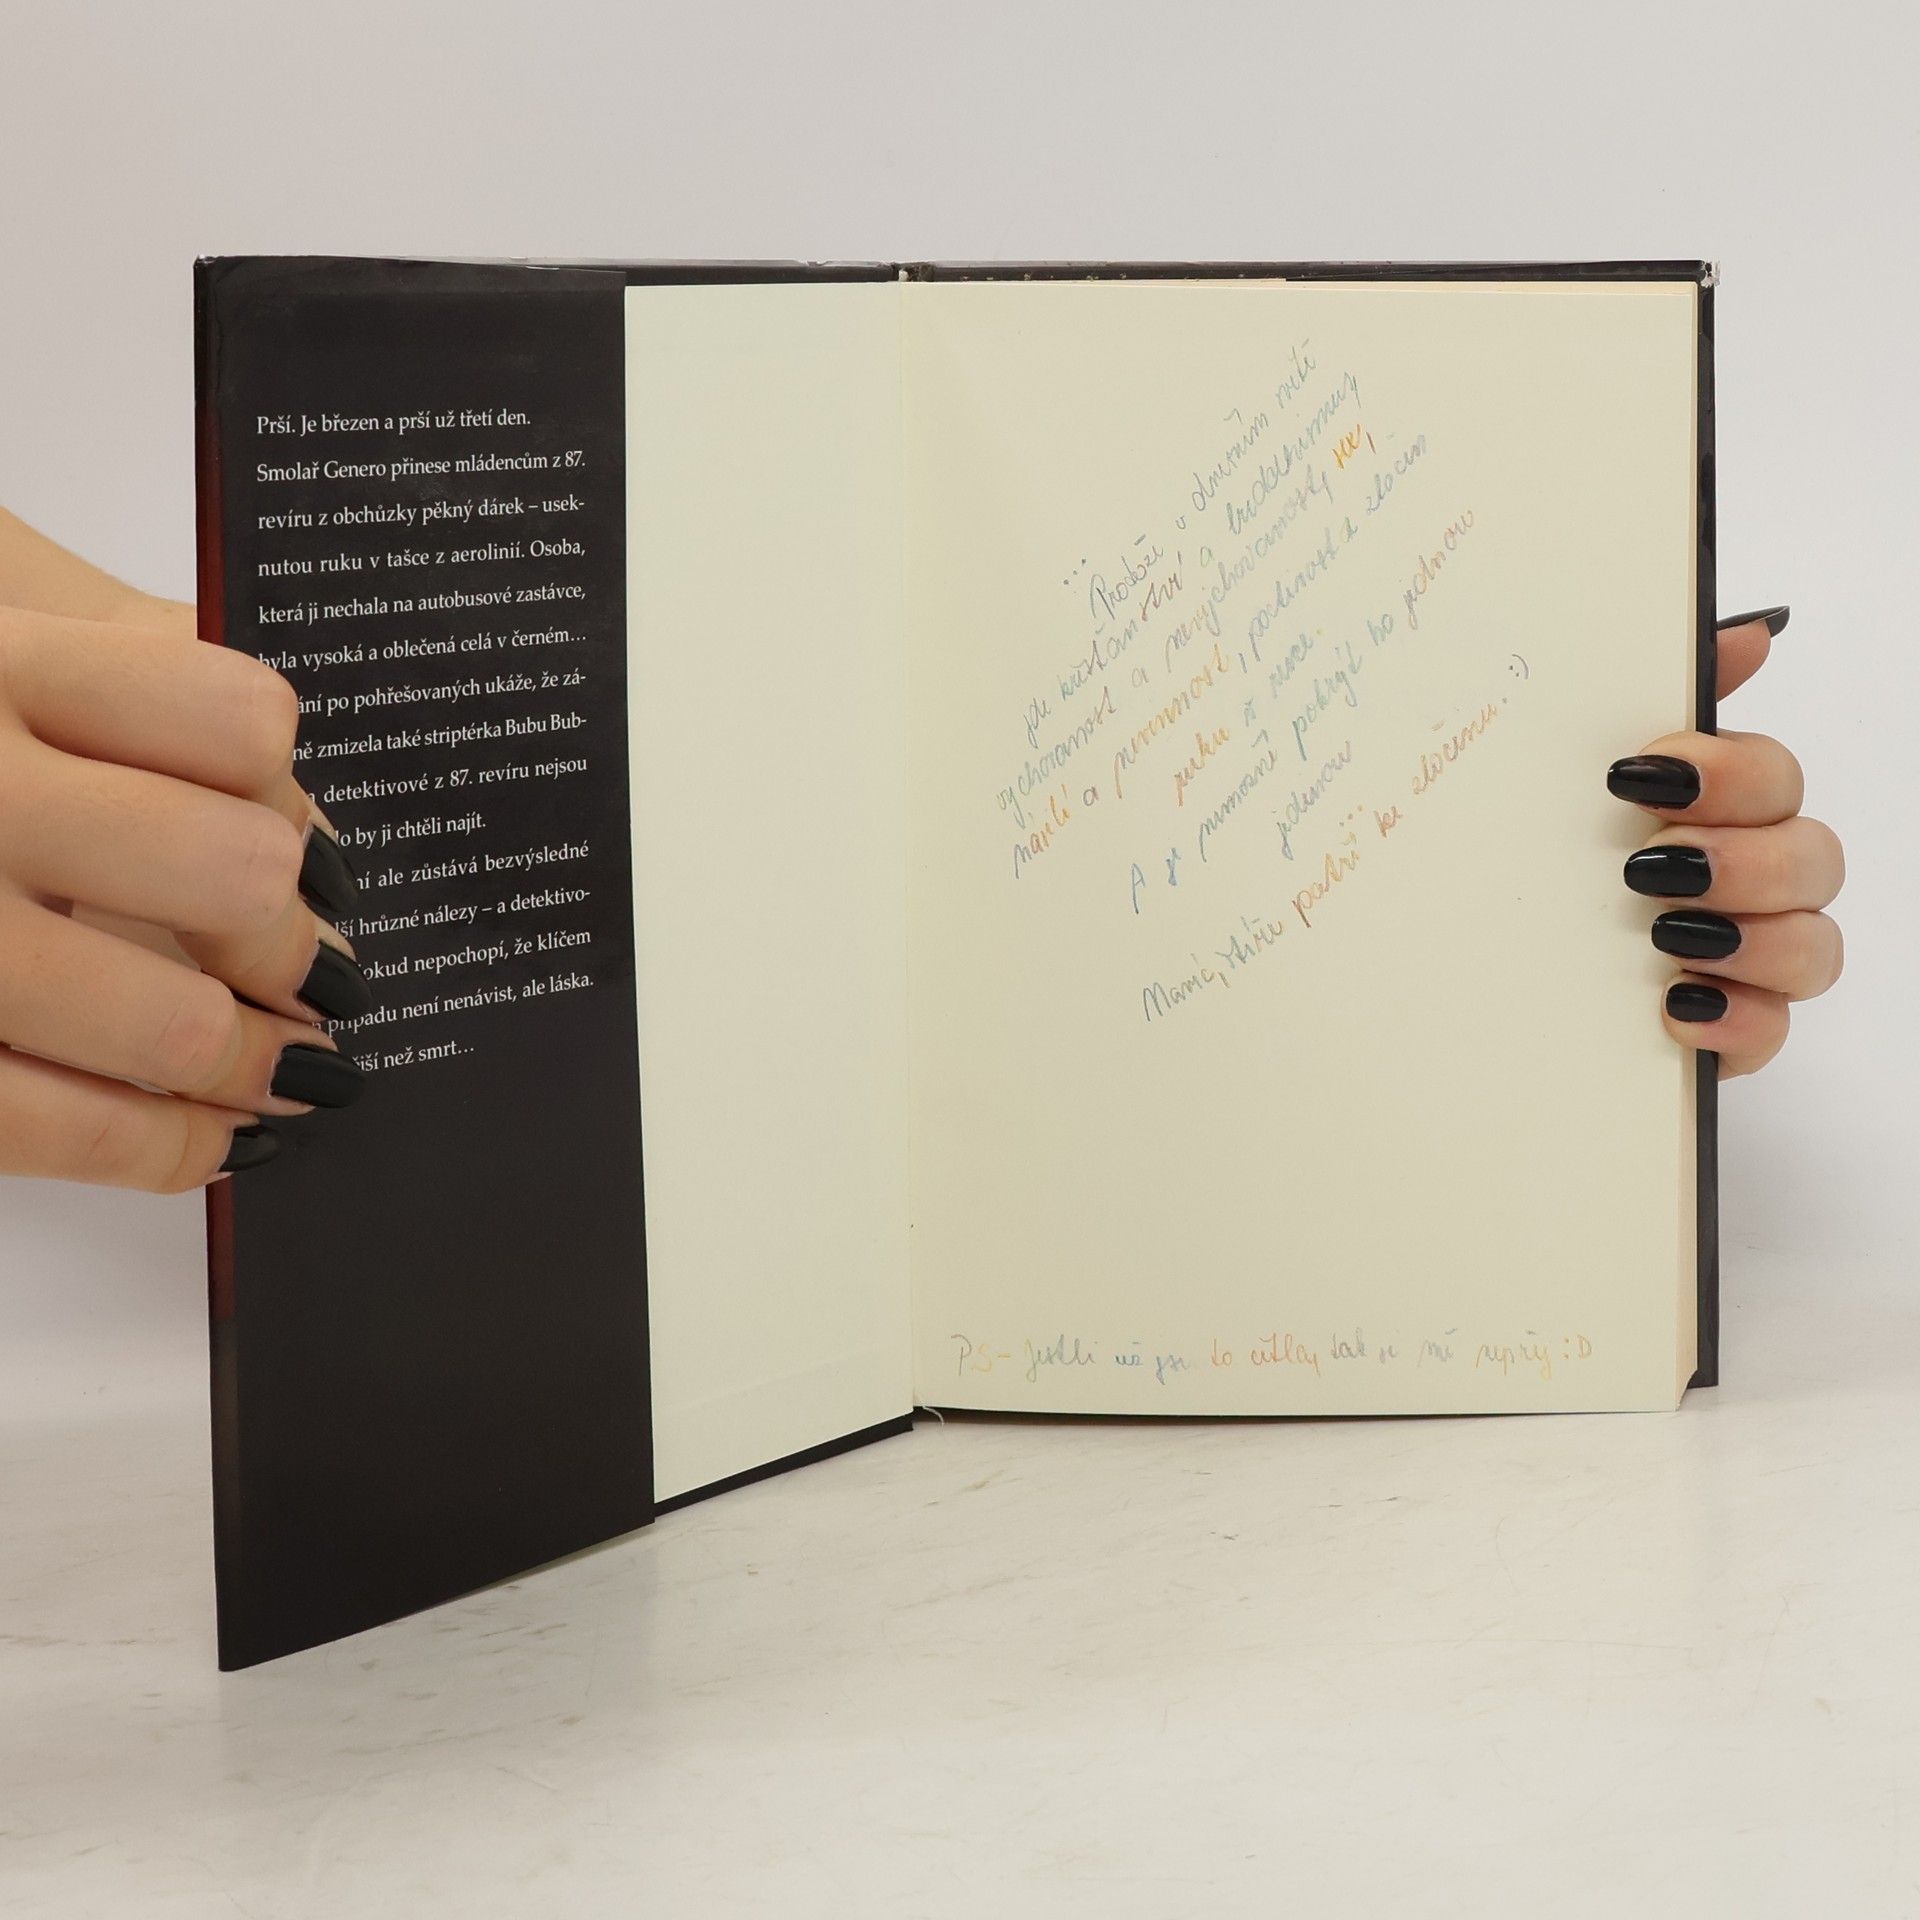 Prší. Je březen a prší už třetí den.
Smolař Genero přinese mládencům z 87.
revíru z obchůzky pěkný dárek – usek-
nutou ruku v tašce z aerolinií. Osoba,
která ji nechala na autobusové zastávce,
byla vysoká a oblečená celá v černém…
ání po pohřešovaných ukáže, že zá-
ně zmizela také striptérka Bubu Bub-
detektivové z 87. revíru nejsou
lo by ji chtěli najít.
ní ale zůstává bezvýsledné
lší hrůzné nálezy – a detektivo-
okud nepochopí, že klíčem
případu není nenávist, ale láska.
jší než smrt…
... Protože v dnešním světě
jde křesťanství a buddhismus,
vychovanost a nevychovanost, sex,
násilí a nevinnost, poctivost a zločin
ruku v ruce.
A je nemožné pokrýt ho jednou
jedinou
...
patří ke zločinu. :)
PS- Jestli už jsi to četla, tak se mě neptej :D